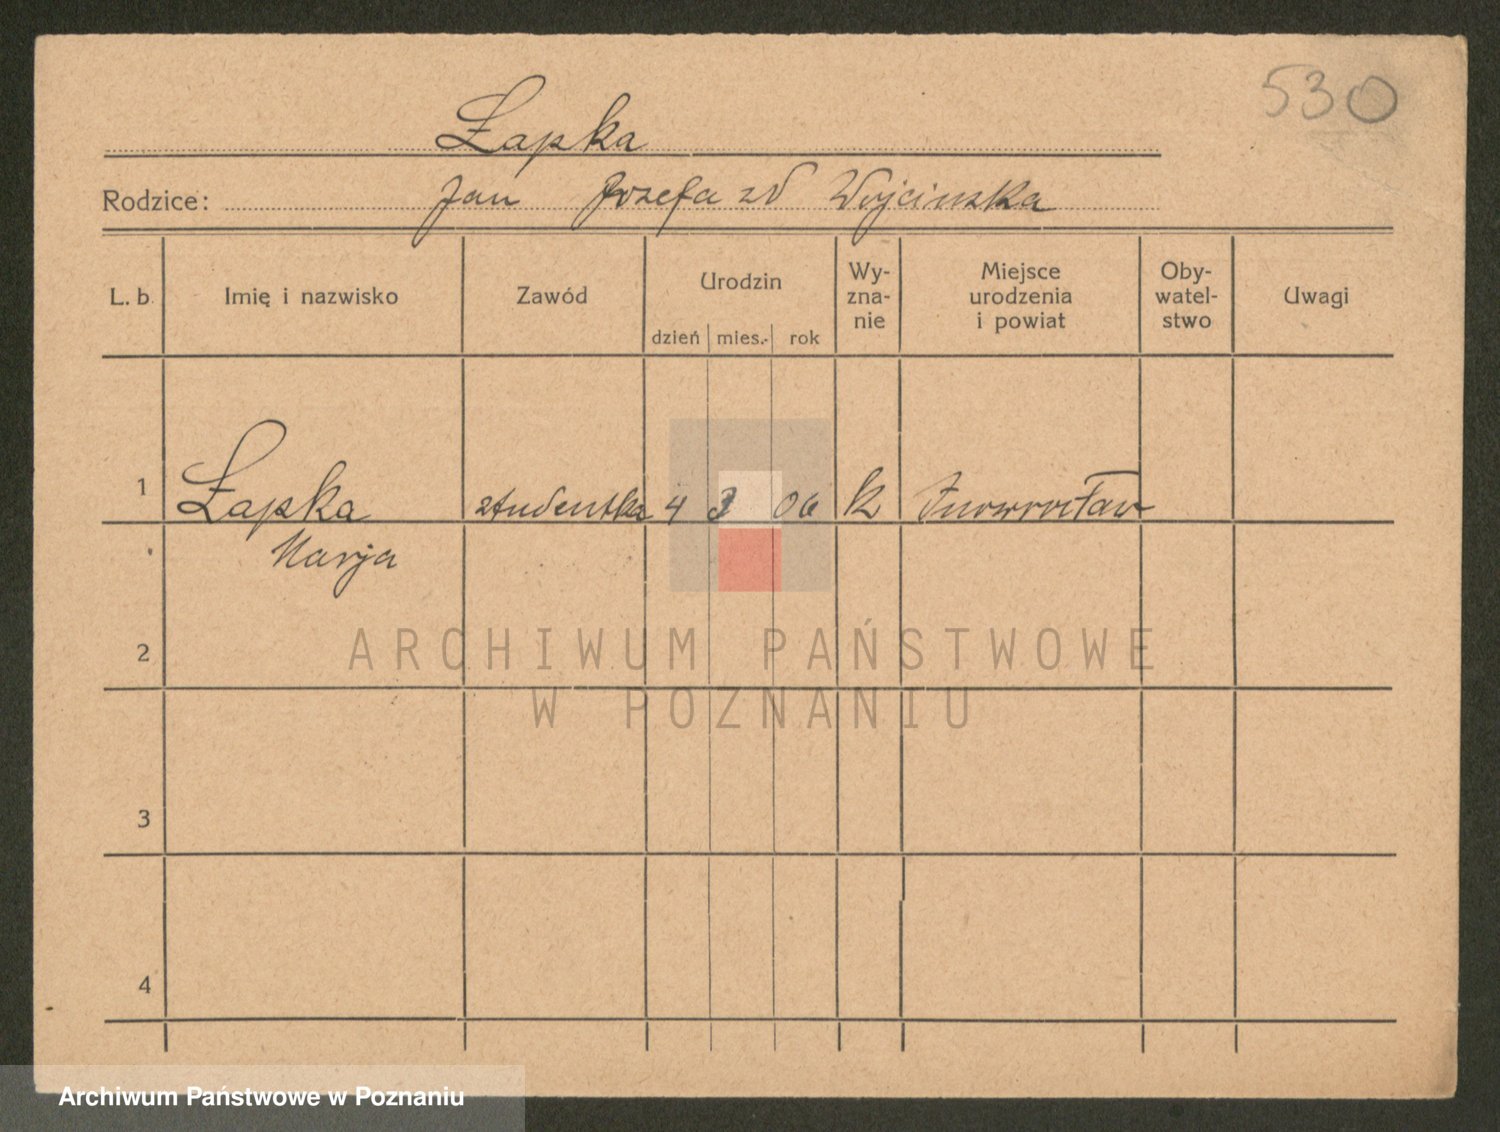 530
Łapka
Rodzice: Jan Józefa zd Wojcinska
L. b. Imię i nazwisko Zawód Urodzin Wy-zna-nie Miejsce urodzenia i powiat Oby-watel-stwo Uwagi
dzień mies. rok
1 Łapka studentka 4 3 06 k Inowrocław
Marja
2
ARCHIWUM PAŃSTWOWE
W POZNANIU
3
4
Archiwum Państwowe w Poznaniu